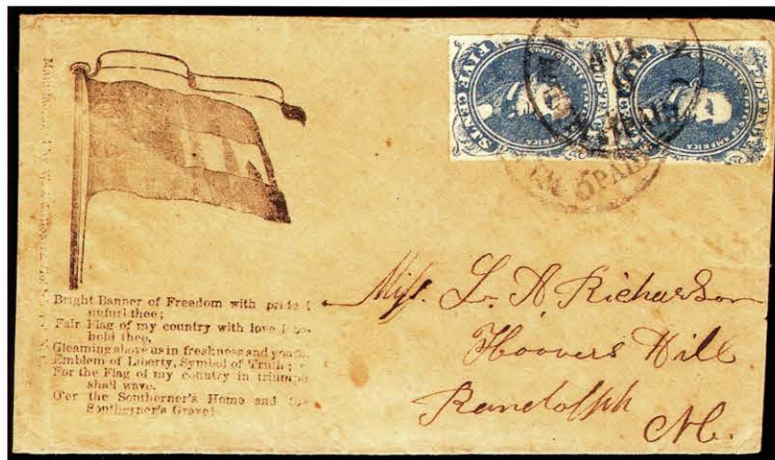 FIVE CENTS
POSTAGE
CONFEDERATE STATES OF AMERICA
PAID
Bright Banner of Freedom with pride I
unfurl thee;
Fair Flag of my country with love I be-
hold thee,
Gleaming above us in freshness and youth
Emblem of Liberty, Symbol of Truth;
For the Flag of my country in triumph
shall wave,
O'er the Southerner's Home and the
Southerner's Grave!
Miss. L. A Richardson
Hoovers Hill
Randolph
NC.